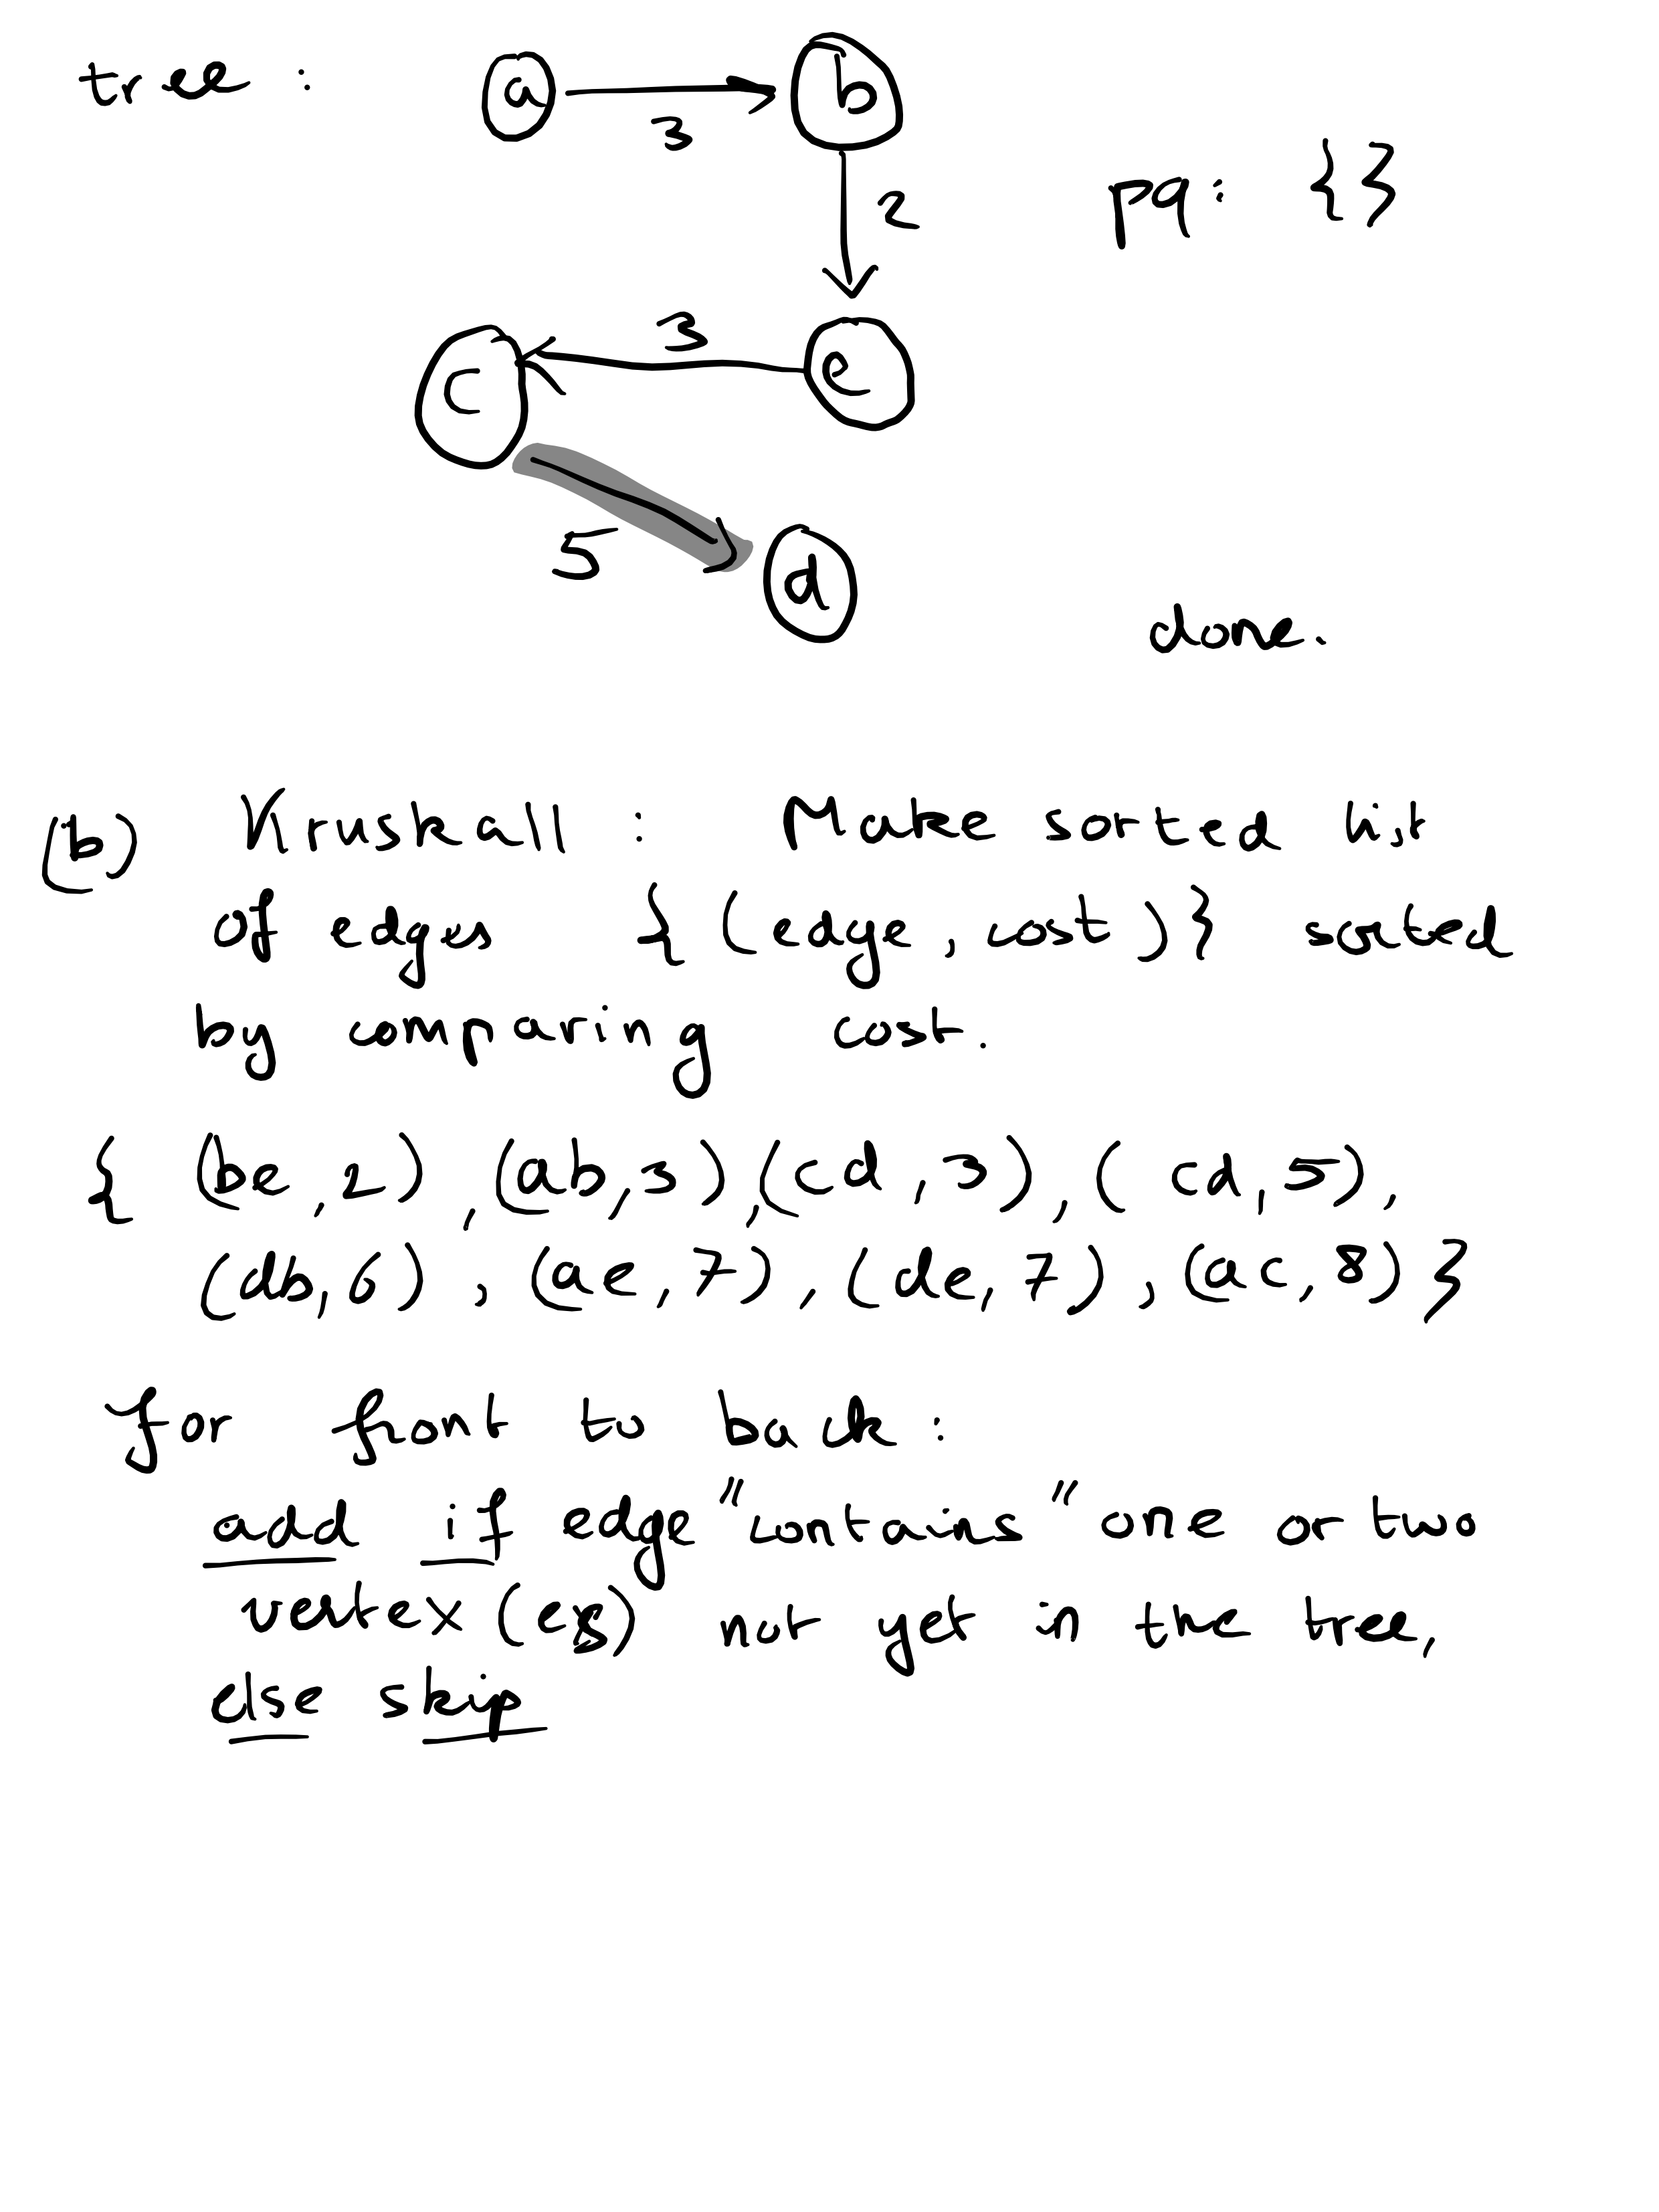 tree :
a
3
b
2
pq: {}
3
c
e
5
d
done.
(b) Kruskall : Make sorted list
of edges {(edge, cost)} sorted
by comparing cost.
{ (be,2), (ab,3), (cd,3), (cd,5),
(db,6), (ae,7), (de,7), (ac,8)}
for front to back:
add if edge "contains" one or two
vertex(es) not yet in the tree,
else skip